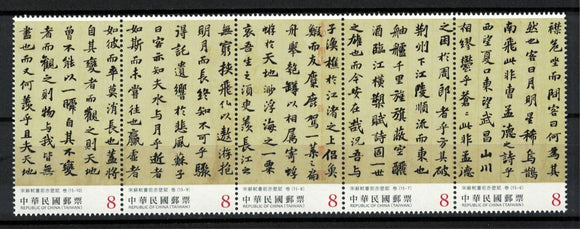 襟危坐而問客曰何為其
然也客曰月明星稀烏鵲
南飛此非曹孟德之詩乎
西望夏口東望武昌山川
相繆鬱乎蒼蒼此非孟德
之困於周郎者乎方其破
荊州下江陵順流而東也
舳艫千里旌旗蔽空釃
酒臨江橫槊賦詩固一世
之雄也而今安在哉況吾與
子漁樵於江渚之上侶魚
鰕而友麋鹿駕一葉之扁
舟舉匏樽以相屬寄蜉
蝣於天地渺浮海之一粟
哀吾生之須臾羨長江之
無窮挾飛仙以遨遊抱
明月而長終知不可乎驟
得託遺響於悲風蘇子
曰客亦知夫水與月乎逝者
如斯而未嘗往也贏虛者
如彼而卒莫消長也蓋將
自其變者而觀之則天地
曾不能以一瞬自其不變
者而觀之則物與我皆無
盡也而又何羨乎且夫天地
宋蘇軾書前赤壁賦 卷 (15-10)
中華民國郵票 8
REPUBLIC OF CHINA (TAIWAN)
宋蘇軾書前赤壁賦 卷 (15-9)
中華民國郵票 8
REPUBLIC OF CHINA (TAIWAN)
宋蘇軾書前赤壁賦 卷 (15-8)
中華民國郵票 8
REPUBLIC OF CHINA (TAIWAN)
宋蘇軾書前赤壁賦 卷 (15-7)
中華民國郵票 8
REPUBLIC OF CHINA (TAIWAN)
宋蘇軾書前赤壁賦 卷 (15-6)
中華民國郵票 8
REPUBLIC OF CHINA (TAIWAN)